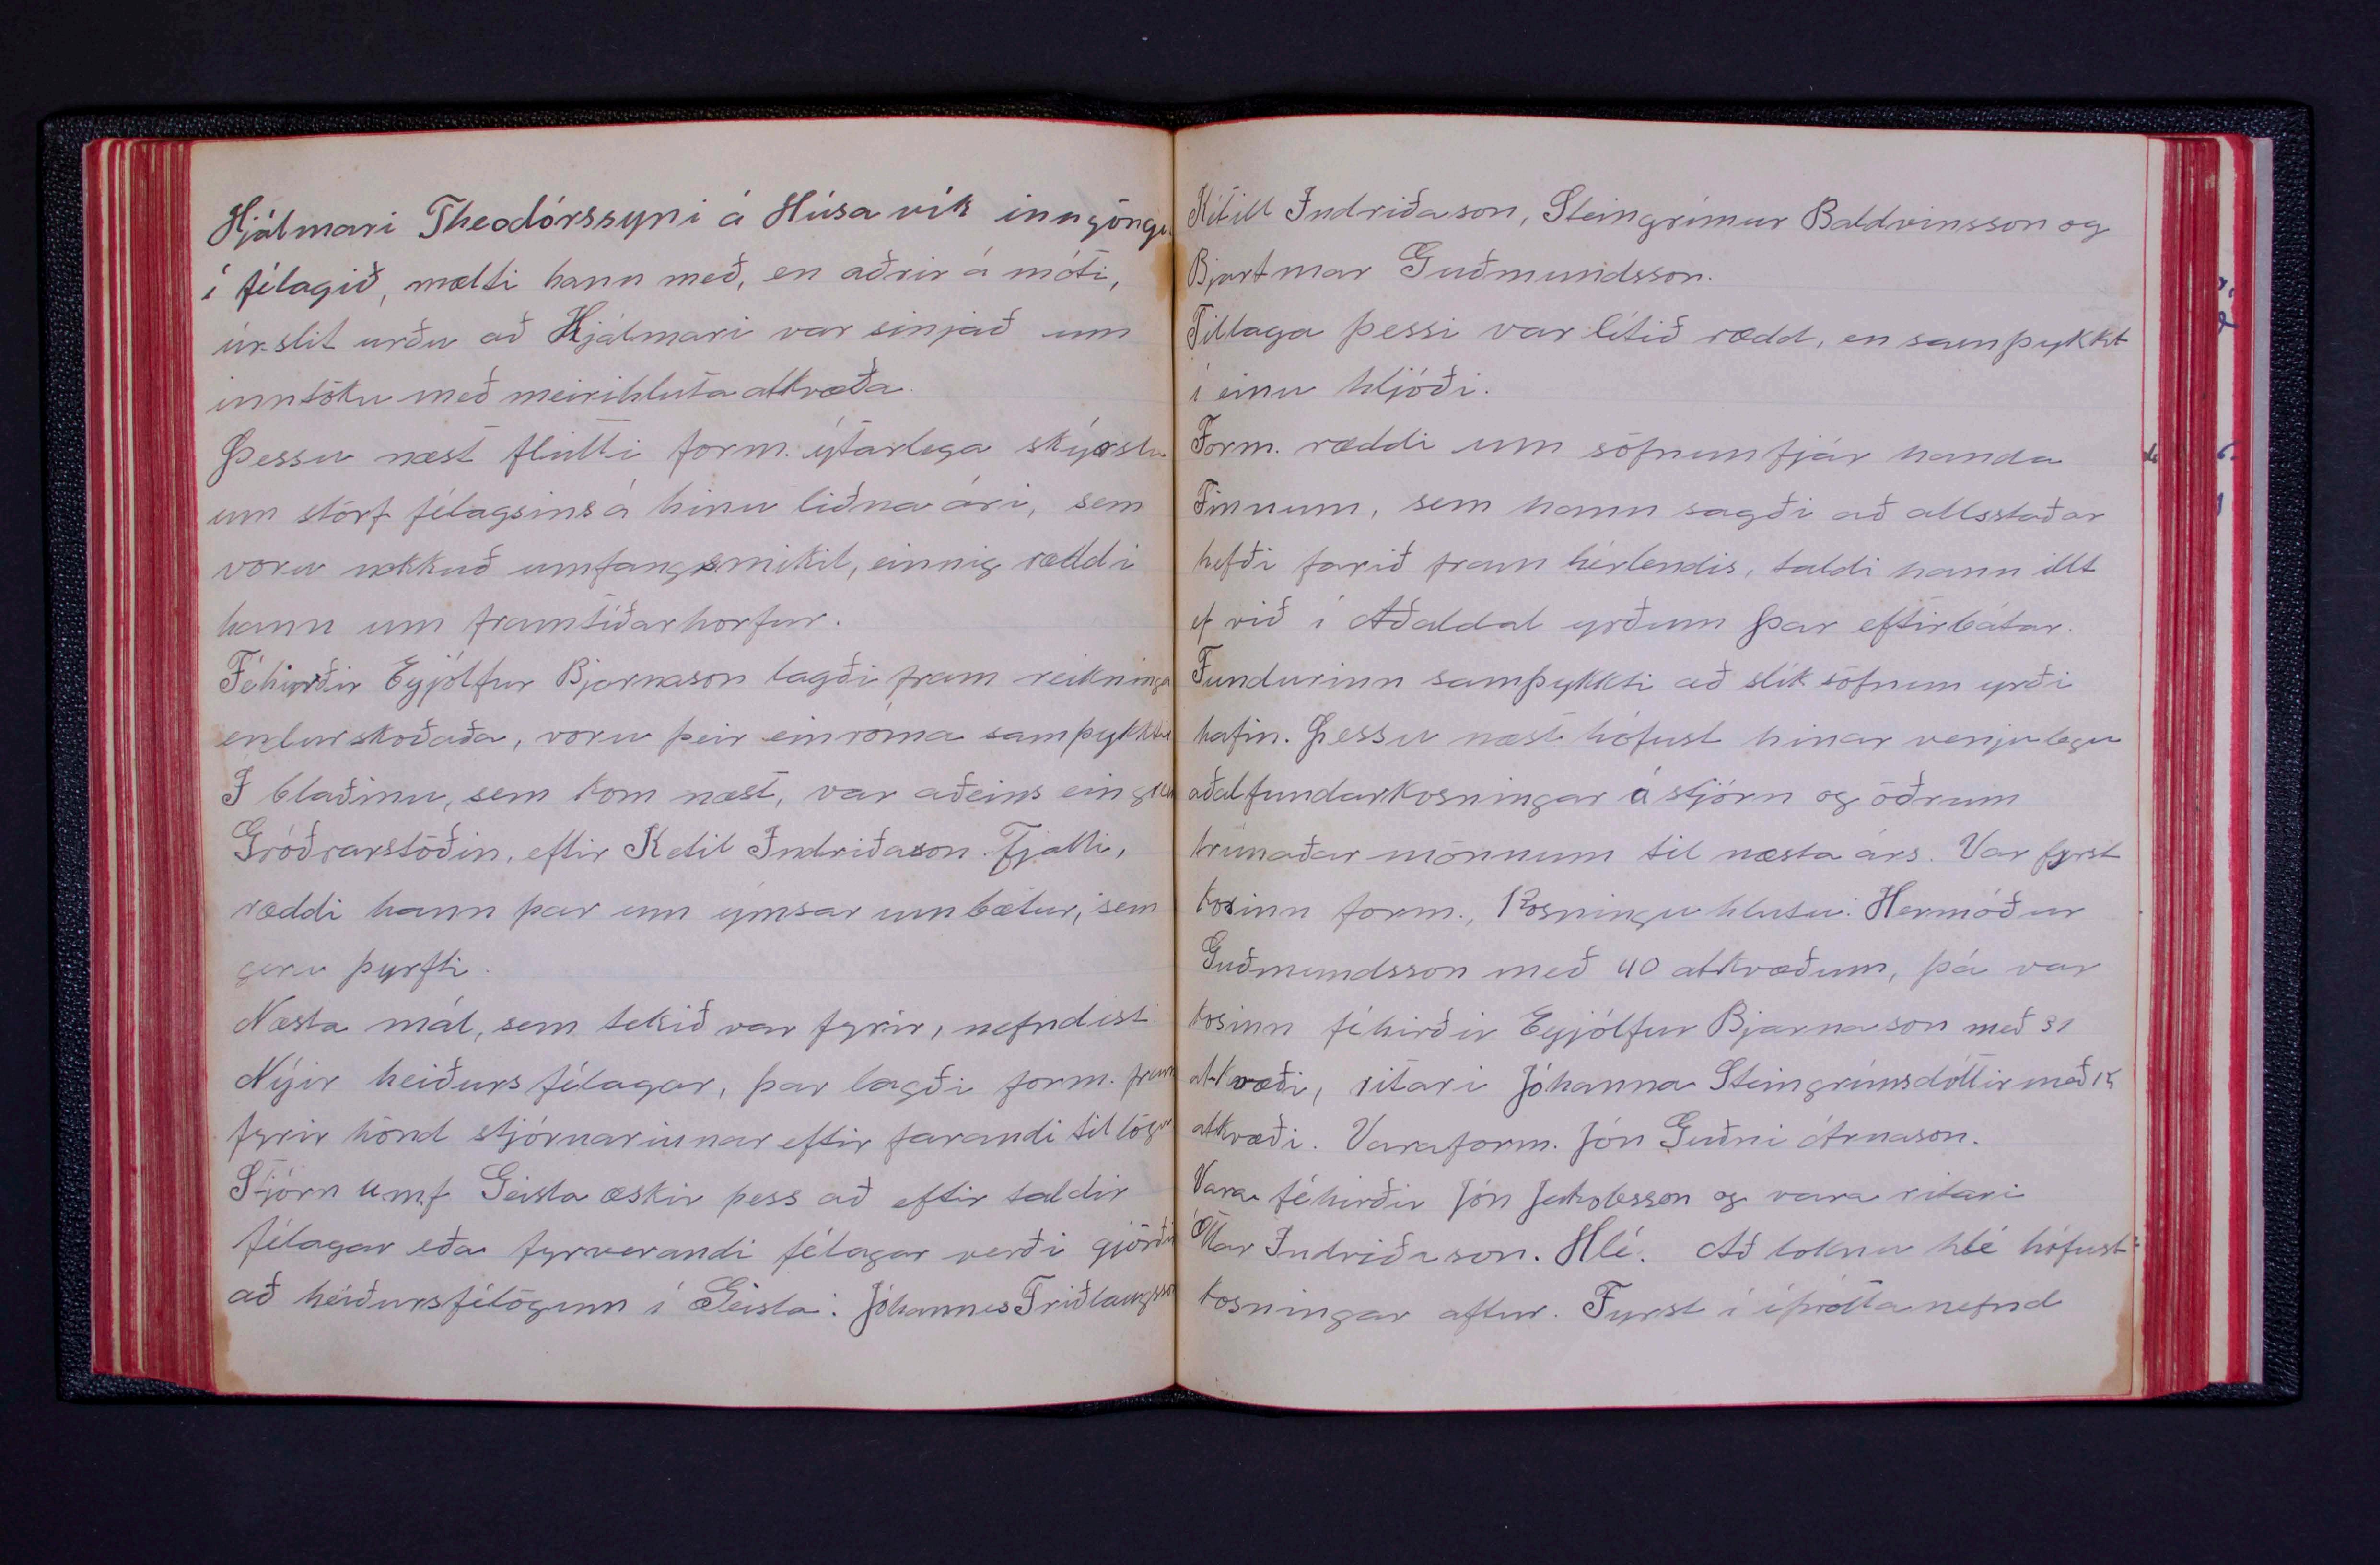 Hjálmari Theodórssyni á Húsavík inngöngu
í félagið, mælti hann með, en aðrir á móti,
úrslit urðu að Hjálmari var sinjað um
inntöku með meirihluta atkvæða.
Þessu næst flutti form. ýtarlega skýrslu
um störf félagsins á hinu liðna ári, sem
voru nokkuð umfangsmikil, einnig ræddi
hann um framtíðarhorfur.
Féhirðir Eyjólfur Bjarnason lagði fram reikninga
endurskoðaða, voru þeir einróma samþykktir
Í blaðinu, sem kom næst, var aðeins ein grein
Gróðrarstöðin, eftir Ketil Indriðason Fjalli,
ræddi hann þar um ýmsar umbætur, sem
gera þyrfti.
Næsta mál, sem tekið var fyrir, nefndist
Nýir heiðursfélagar, þar lagði form. fram
fyrir hönd stjórnarinnar eftir farandi tillögu
Stjórn umf Geisla æskir þess að eftir taldir
félagar eða fyrverandi félagar verði gjörðir
að heiðursfélögum í Geisla: Jóhannes Friðlaugsson
Ketill Indriðason, Steingrímur Baldvinsson og
Bjartmar Guðmundsson.
Tillaga þessi var lítið rædd, en samþykkt
í einu hljóði.
Form. ræddi um söfnun fjár handa
Finnum, sem hann sagði að allsstaðar
hefði farið fram hérlendis, taldi hann illt
ef við í Aðaldal yrðum þar eftirbátar.
Fundurinn samþykkti að slík söfnun yrði
hafin. Þessu næst hófust hinar venjulegu
aðalfundarkosningar á stjórn og öðrum
trúnaðar mönnum til næsta árs. Var fyrst
kosinn form., Kosningu hlutu: Hermóður
Guðmundsson með 40 atkvæðum, þá var
kosinn féhirðir Eyjólfur Bjarnason með 31
atkvæði, ritari Jóhanna Steingrímsdóttir með 15
atkvæði. Varaform. Jón Guðni Árnason.
Vara féhirðir Jón Jakobsson og vara ritari
Óttar Indriðason. Hlé. Að loknu hlé hófust
kosningar aftur. Fyrst í íþróttanefnd